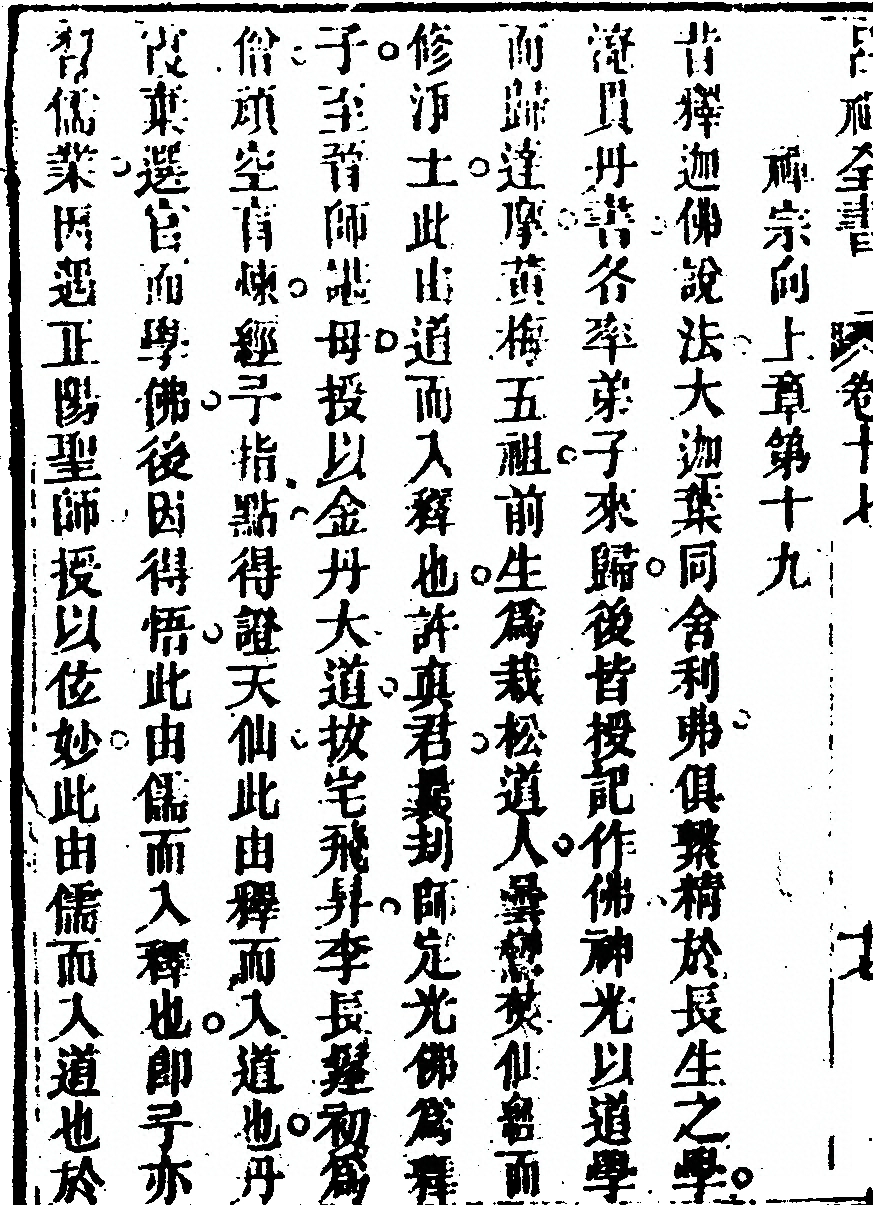 呂祖全書 卷十七 十七
禪宗向上章第十九
昔釋迦佛說法大迦葉同舍利弗俱繫精於長生之學
淹貫丹書各率弟子來歸後皆授記作佛神光以道學
而歸達摩黃梅五祖前生爲栽松道人曇鸞焚仙而
修淨土此由道而入釋也許真君曩刼師定光佛爲釋
子至晉師諶母授以金丹大道拔宅飛昇李長初爲
僧頑空盲煉經予指點得證天仙此由釋而入道也丹
霞棄選官而學佛後因得悟此由儒而入釋也卽予亦
習儒業因遇正陽聖師授以玄妙此由儒而入道也於